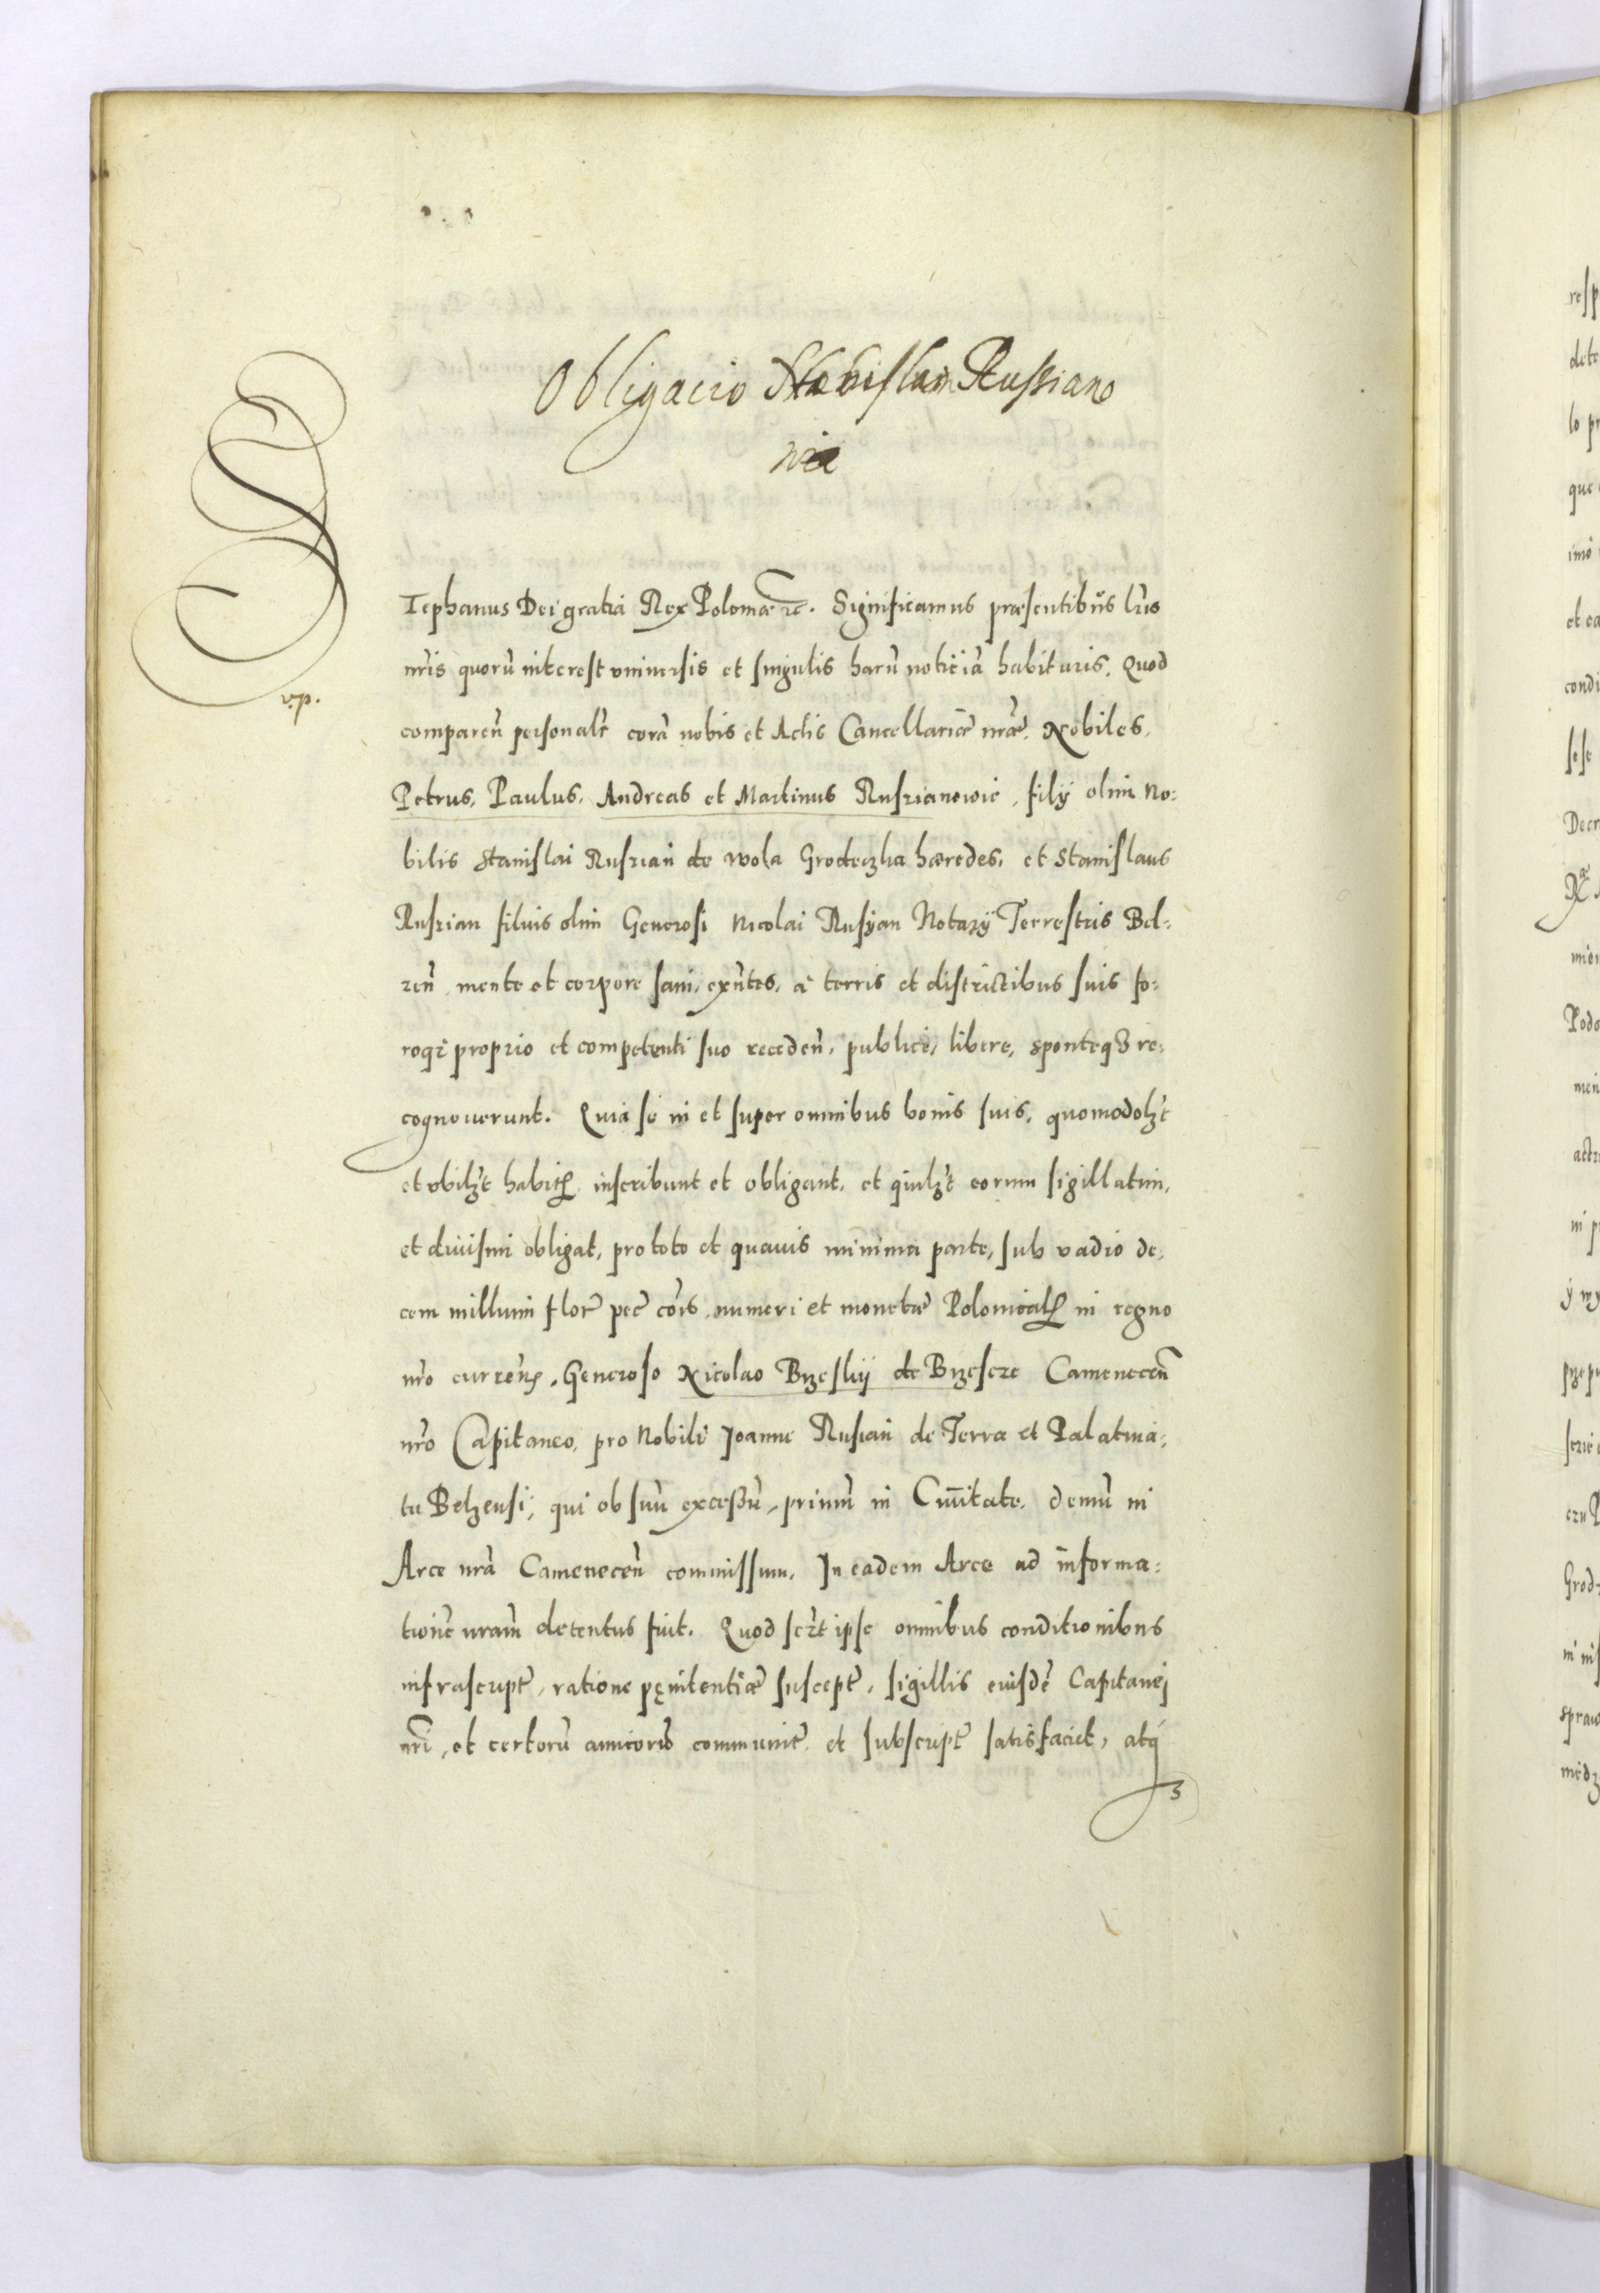 Obligacio Stanislai Russiano
wic
STephanus Dei gratia Rex Poloniæ etc. Significamus præsentibus lr̃is
nr̃is quorũ interest vniuersis et singulis harũ noticiã habituris. Quod
v.p.
comparen̄ personalr̃ corã nobis et Actis Cancellariæ nr̃æ. Nobiles.
Petrus, Paulus, Andreas et Martinus Ruszianowic, filÿ olim No:
bilis Stanislai Ruszian de Wola Grodeczka hæredes, et Stanislaus
Ruszian filius olim Generosi Nicolai Rusÿan Notarÿ Terrestris Bel:
zen̄. mente et corpore sani, exn̄tes, à terris et districtibus suis fo:
roq̃ proprio et competenti suo receden̄, publicè, libere, sponteqз re:
cognouerunt. Quia se in et super omnibus bonis suis, quomodolзt
et vbilзt habitꝭ inscribunt et obligant, et quilзt eorum sigillatim,
et diuisim obligat, pro toto et quauis minima parte, sub vadio de:
cem millium flor̃ pec̃ cõis numeri et monetæ Polonicalꝭ in regno
nr̃o curren̄, Generoso Nicolao Brzeskÿ de Brzescze Camenecen̄
nr̃o Capitaneo, pro Nobili Joanne Rusian de Terra et Palatina:
tu Belzensi, qui ob suũ excessũ, primũ in Ciuitate, demũ in
Arce nr̃a Camenecen̄ commissum, In eadem Arce ad informa:
tionẽ nram̃ detentus fuit. Quod scr̃t ipse omnibus conditionibus
infrascript̃, ratione pęnitentiæ suscept̃, sigillis eiusdẽ Capitanei
nr̃i, et certorũ amicorũ communit̃ et subscript̃ satisfaciet, atqз